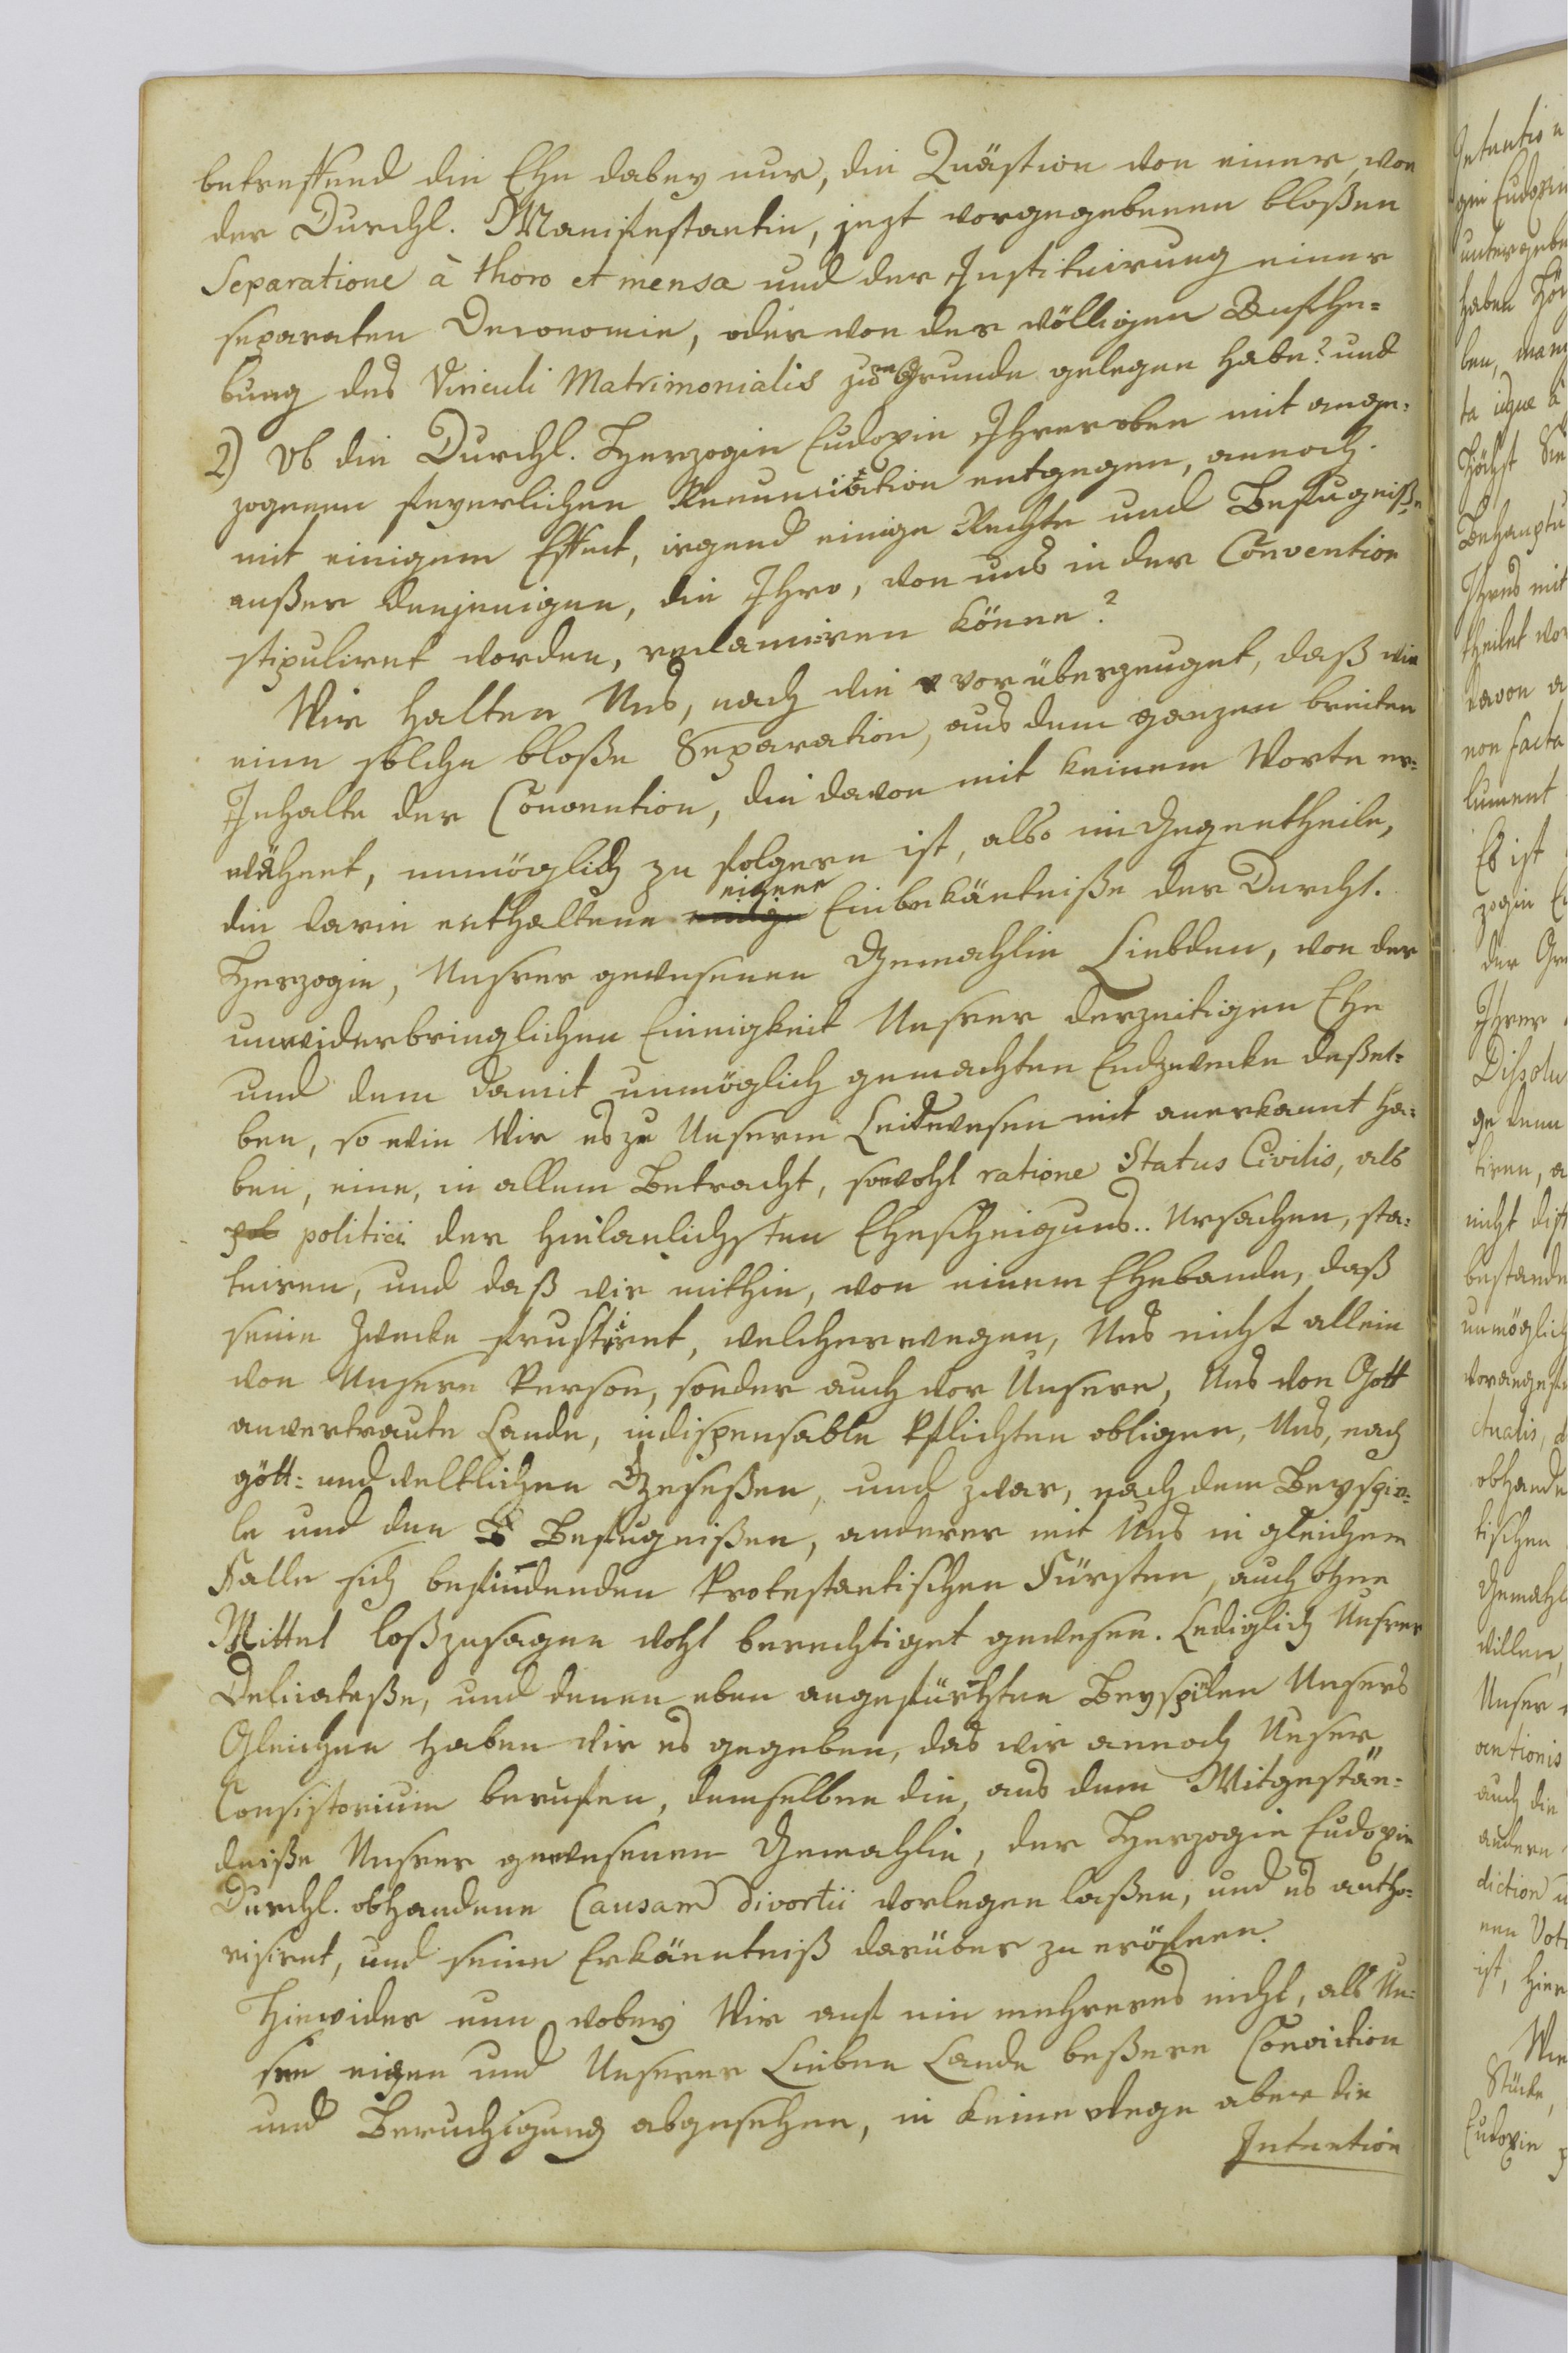 betreffend die Ehe dabey nur, die Quästion von einer, von
der Durchl. Manifestantin, jezt vorgegebenen bloßen
Separatione à thoro et mensa und der Instituirung einer
separaten Oeconomie, oder von der völligen Aufhe-
bung des Vinculi Matrimonialis zum Grunde gelegen habe? und
2) Ob die Durchl. Herzogin Eudoxie Ihrer oben mit ange-
zogenen feyerlichen Renunciation entgegen, annoch
mit einigem Effect, irgend einige Rechte und Befugniße
außer denjenigen, die Ihro, von uns in der Convention
stipuliret worden, reclamiren könne?
Wir halten Uns, nach wie vor überzeuget, daß wie
eine solche bloße Separation, aus dem ganzen breiten
Inhalte der Convention, die davon mit keinem Worte er-
wähnet, unmöglich zu folgern ist, also im Gegentheile,
die darin enthaltene eigene Einbekäntniße der Durchl.
Herzogin, Unsrer gewesenen Gemahlin Liebden, von der
unwiderbringlichen Einigkeit Unsrer derzeitigen Ehe
und dem damit unmöglich gemachten Endzwecke deßel-
ben, so wie Wir es zu Unserm Leidewesen mit anerkannt ha-
ben, eine, in allem Betracht, sowohl ratione Status Civilis, als
pol politici der hinlänlichsten Ehescheigungs.. Ursachen, sta-
tuiren, und daß wir mithin, von einem Ehebande, daß
seine Zwecke frustriret, welcherwegen, Uns nicht allein
von Unsere Person, sonder auch vor Unsere, Uns von Gott
anvertraute Lande, indispensable Pflichten obligen, Uns, nach
gött- und weltlichen Gesetzen, und zwar, nach dem Beyspie-
le und den Befugnißen, anderer mit Uns in gleichem
Falle sich befindenden Protestantischen Fürsten, auch ohne
Mittel loßzusagen wohl berechtiget gewesen. Lediglich Unsrer
Delicateße, und denen eben angeführten Beyspielen Unsers
Gleichen haben wir es gegeben, das wir annoch Unser
Consistorium berufen, demselben die, aus dem Mitgestän-
dniße Unsrer gewesenen Gemahlin, der Herzogin Eudoxie
Durchl. obhandene Causam divortii vorlegen laßen, und es autho-
risiret, und seine Erkänntniß darüber zu eröfnen.
Hiewider nun wobey Wir auf ein mehreres nicht, als Un-
sre eigen und Unserer Lieben Lande beßere Conviction
und Beruchigung abgesehen, in keine Wege aber die
Intention